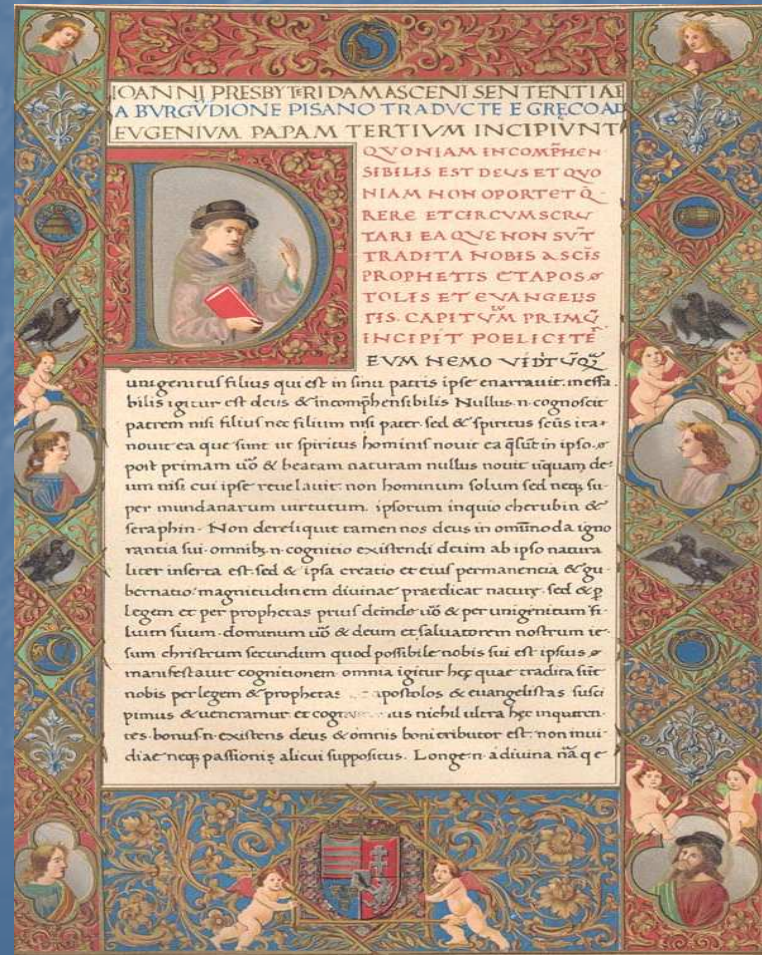 IOANNI PRESBYTERI DAMASCENI SENTENTIAE
A BVRGVDIONE PISANO TRADVCTE E GRĘCO AD
EVGENIVM PAPAM TERTIVM INCIPIVNT
QVONIAM INCOMP̄HEN
SIBILIS EST DEUS ET QVO
NIAM NON OPORTET Q̄
RERE ET CIRCVMSCRU
TARI EA QVE NON SVT̄
TRADITA NOBIS A SCĪS
PROPHETIS ET APOS
TOLIS ET EVANGELIS
TIS. CAPITVM PRIMŪ
INCIPIT
D EVM NEMO VIDT̄
unigenitus filius qui est in sinu patris ipse enarrauit. ineffa
bilis igitur est deus & incomp̄hensibilis Nullus. n. cognoscit
patrem nisi filius nec filium nisi pater. sed & spiritus scūs ita
nouit ea que sunt ut spiritus hominis nouit ea q̄ sūt in ipso.
post primam uō & beatam naturam nullus nouit ūquam de-
um nisi cui ipse reuelauit. non hominum solum sed neq; su-
per mundanarum uirtutum. ipsorum inquio cherubin &
seraphin. Non dereliquit tamen nos deus in omīmoda igno
rantia sui. omnib; n. cognitio existendi deum ab ipso natura
liter inserta est. sed & ipsa creatio et eius permanencia & gu-
bernatio. magnitudinem diuinae praedicat naturę. sed & p̱
legem et per prophetas prius deinde uō & per unigenitum fi-
lium suum. dominum uō & deum et saluatorem nostrum ie-
sum christrum secundum quod possibile nobis sui est ipsius
manifestauit cognitionem. omnia igitur hęc quae tradita sūt
nobis per legem & prophetas apostolos & euangelistas susci
pimus & ueneramur et nichil ultra hęc inquiren
tes. bonus n. existens deus & omnis boni tributor est. non inui-
diae neq; passionis alicui suppositus. Longe n. a diuina nā q e